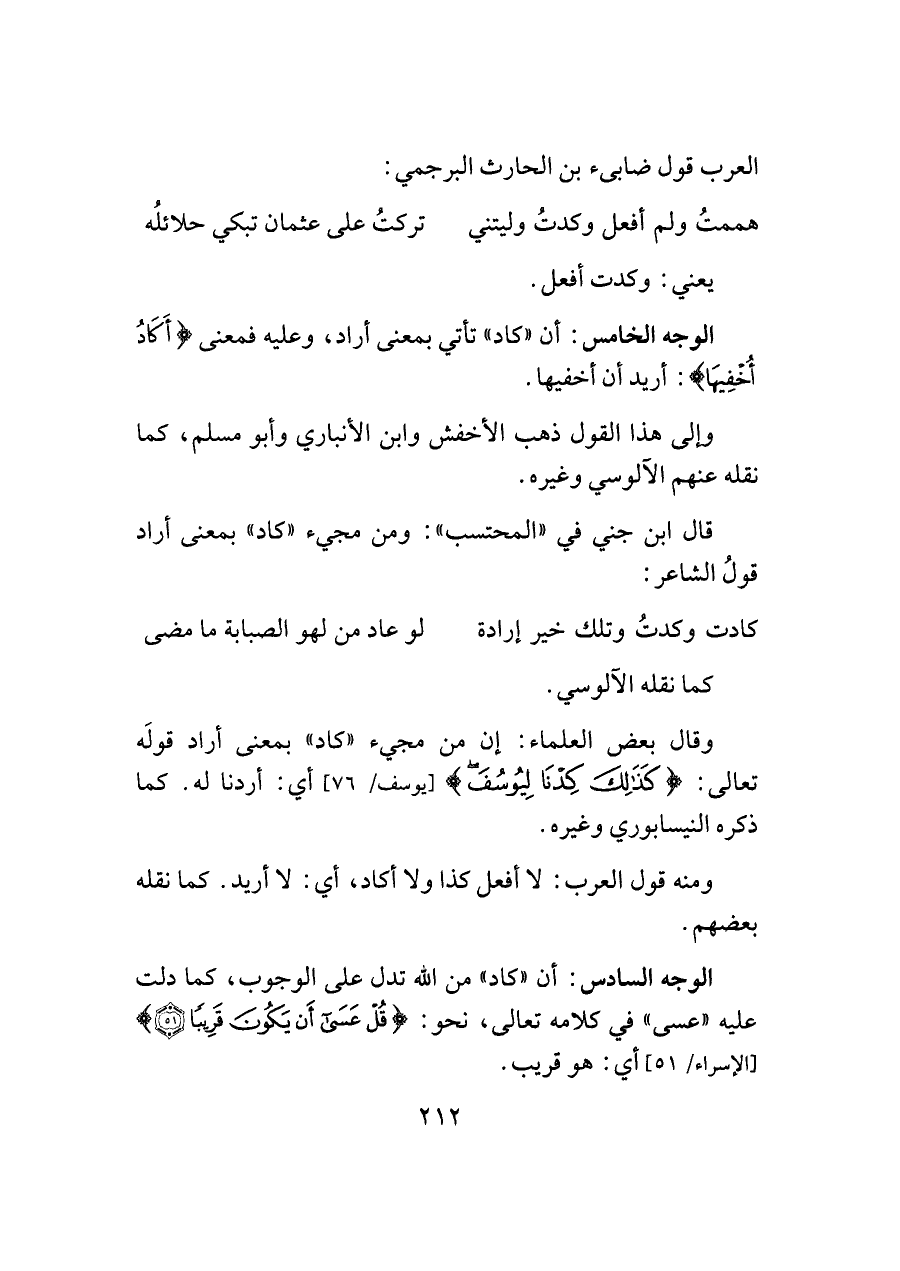 العرب قول ضابىء بن الحارث البرجمي:
هممتُ ولم أفعل وكدتُ وليتني تركتُ على عثمان تبكي حلائلُه
يعني: وكدت أفعل.
الوجه الخامس: أن «كاد» تأتي بمعنى أراد، وعليه فمعنى ﴿أَكَادُ
أُخْفِيهَا﴾: أريد أن أخفيها.
وإلى هذا القول ذهب الأخفش وابن الأنباري وأبو مسلم، كما
نقله عنهم الآلوسي وغيره.
قال ابن جني في «المحتسب»: ومن مجيء «كاد» بمعنى أراد
قولُ الشاعر:
كادت وكدتُ وتلك خير إرادة لو عاد من لهو الصبابة ما مضى
كما نقله الآلوسي.
وقال بعض العلماء: إن من مجيء «كاد» بمعنى أراد قولَه
تعالى: ﴿كَذَٰلِكَ كِدْنَا لِيُوسُفَۖ﴾ [يوسف/ ٧٦] أي: أردنا له. كما
ذكره النيسابوري وغيره.
ومنه قول العرب: لا أفعل كذا ولا أكاد، أي: لا أريد. كما نقله
بعضهم.
الوجه السادس: أن «كاد» من الله تدل على الوجوب، كما دلت
عليه «عسى» في كلامه تعالى، نحو: ﴿قُلْ عَسَىٰٓ أَن يَكُونَ قَرِيبًا ٥١﴾
[الإسراء/ ٥١] أي: هو قريب.
٢١٢